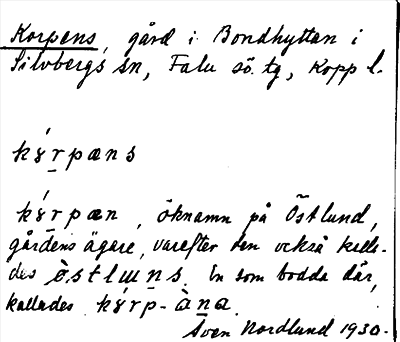 Korpens, gård i Bondhyttan i
Silvbergs sn, Falu sö. tg, Kopp l.
kɤ́r̲pæns
kɤ́r̲pæn, öknamn på Östlund,
gårdens ägare, varefter den också kalla-
des ö̀stlɯns. En som bodde där,
kallades kɤ́rp-ànа.
Sven Nordlund 1930.